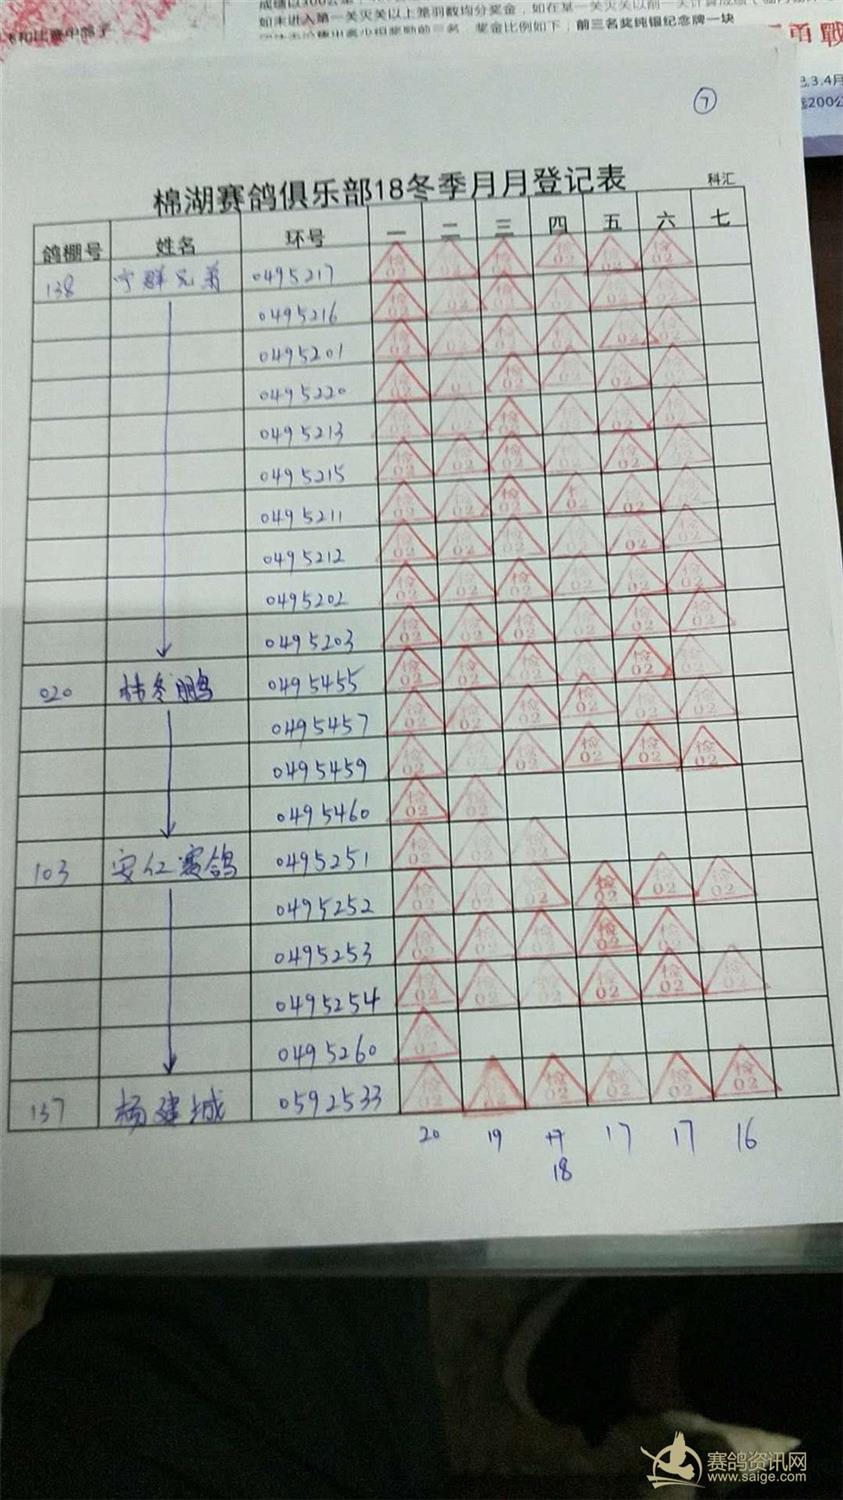 如未进入第一关灭关以上笼羽数均分奖金，如在某一关灭关以前一关计算成绩
奖金比例如下：前三名奖纯银纪念牌一块
勇戰
3.4月
⑦
棉湖赛鸽俱乐部18冬季月月登记表 科汇
鸽棚号 姓名 环号 一 二 三 四 五 六 七
138 兄弟 0495217 检02 检02 检02 检02 检02 检02
0495216 检02 检02 检02 检02 检02 检02
0495201 检02 检02 检02 检02 检02 检02
0495220 检02 检02 检02 检02 检02 检02
0495213 检02 检02 检02 检02 检02 检02
0495215 检02 检02 检02 检02 检02 检02
0495211 检02 检02 检02 检02 检02 检02
0495212 检02 检02 检02 检02 检02 检02
0495202 检02 检02 检02 检02 检02 检02
0495203 检02 检02 检02 检02 检02 检02
020 林冬鹏 0495455 检02 检02 检02 检02 检02 检02
0495457 检02 检02 检02 检02 检02 检02
0495459 检02 检02 检02 检02 检02 检02
0495460 检02 检02
103 安仁赛鸽 0495251 检02 检02 检02
0495252 检02 检02 检02 检02 检02 检02
0495253 检02 检02 检02 检02 检02
0495254 检02 检02 检02 检02 检02 检02
0495260 检02
137 杨建城 0592533 检02 检02 检02 检02 检02 检02
20 19 18 17 17 16
赛鸽资讯网
www.saige.com